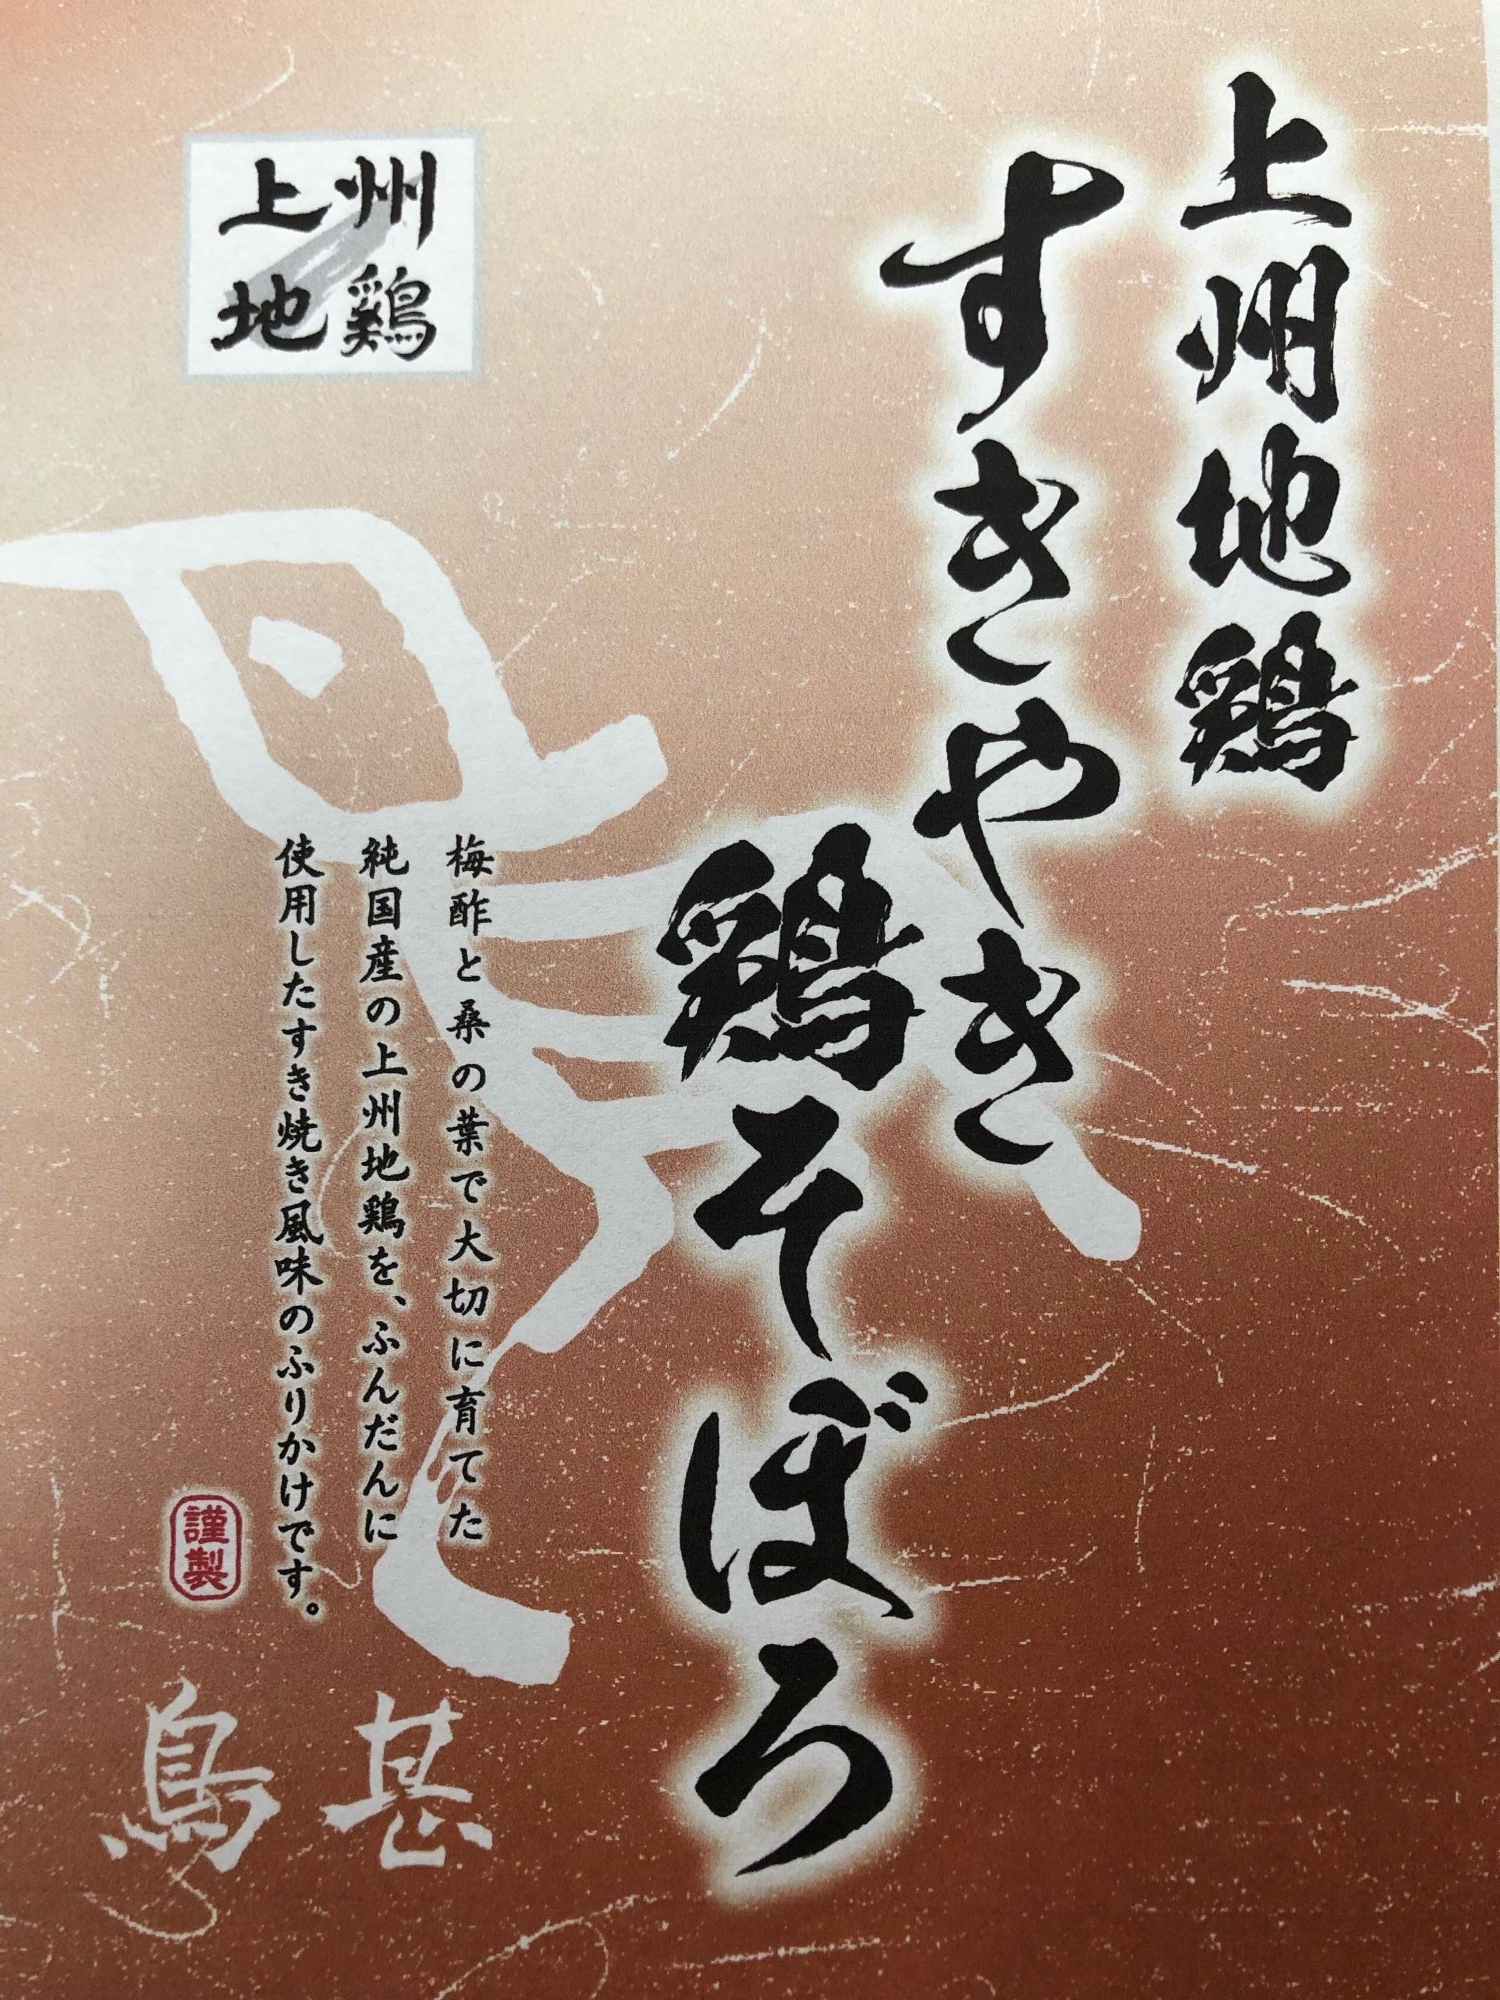 上州地鶏
すきやき
鶏そぼろ
上州
地鶏
梅酢と桑の葉で大切に育てた
純国産の上州地鶏を、ふんだんに
使用したすき焼き風味のふりかけです。
謹製
鳥甚